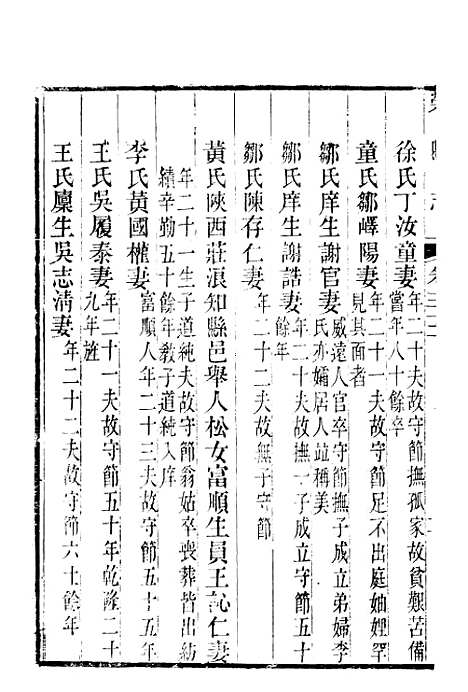 徐氏丁汝童妻年二十夫故守節撫孤家故貧艱苦備
嘗年八十餘卒
童氏鄒嶧陽妻年二十一夫故守節足不出庭妯娌罕
見其面者
鄒氏庠生謝官妻威遠人官卒守節撫子成立弟婦李
氏亦孀居人竝稱美
鄒氏庠生謝誥妻年二十夫故撫一子成立守節五十
餘年
鄒氏陳存仁妻年二十二夫故撫子守節
黃氏陝西莊浪知縣邑舉人松女富順生員王訫仁妻
年二十一生子道純夫故守節翁姑卒喪葬皆出紡
績辛勤五十餘年敎子道純入庠
李氏黃國權妻富順人年二十三夫故守節五十五年
王氏吳履泰妻年二十一夫故守節五十年乾隆二十
九年旌
王氏廩生吳志淸妻年二十二夫故守節六十餘年